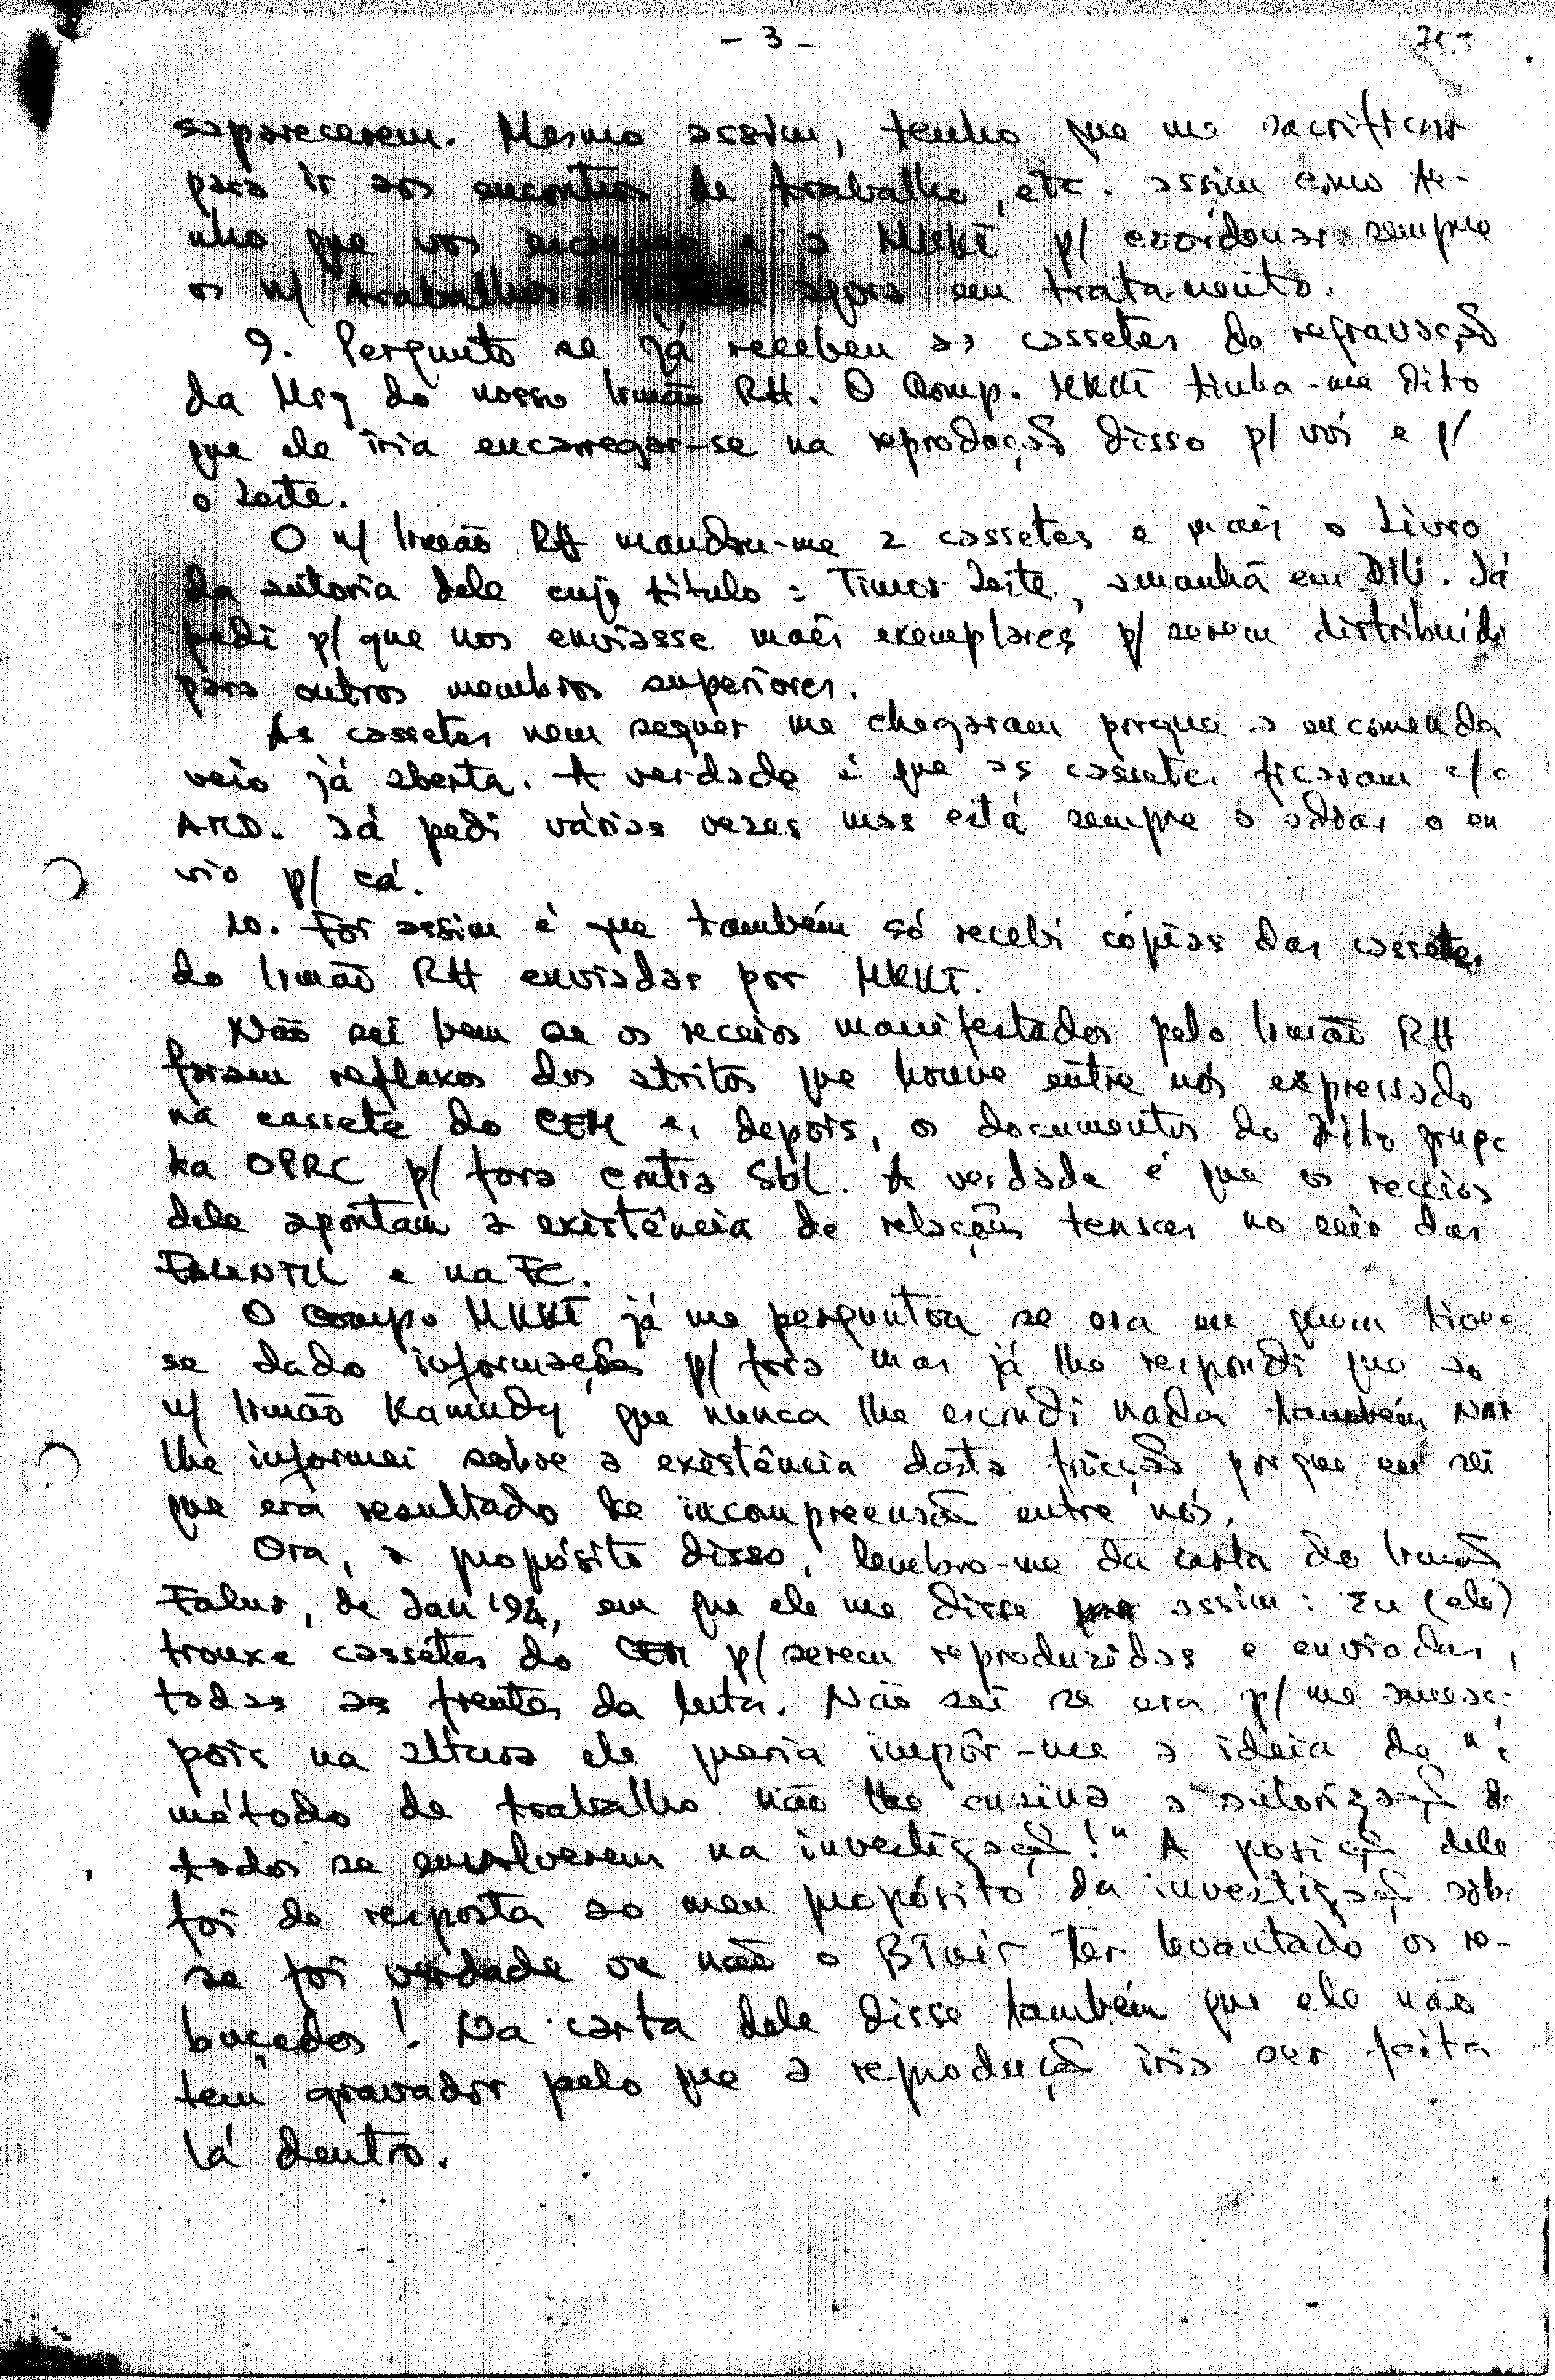 - 3 -
saparecerem. Mesmo assim, tenho que me sacrificar
para ir aos encontros de trabalho, etc. assim como te-
nho que vos escrever e a MKKT p/ coordenar sempre
os n/ trabalhos. agora em tratamento.
9. Pergunto se já recebeu as cassetes da regravação
da Msg do nosso Irmão RH. O Comp. MKKT tinha-me dito
que ele iria encarregar-se na reprodução disso p/ vós e p/
o Leste.
O n/ Irmão RH mandou-me 2 cassetes e mais o Livro
da autoria dele cujo título: Timor Leste, amanhã em Dili. Já
pedi p/ que nos enviasse mais exemplares p/ serem distribuid
para outros membros superiores.
As cassetes nem sequer me chegaram porque a encomenda
veio já aberta. A verdade é que as cassetes ficaram c/o
AMD. Já pedi várias vezes mas está sempre a adiar o en
vio p/ cá.
10. Foi assim é que também só recebi cópias das cassetes
do Irmão RH enviadas por MKKT.
Não sei bem se os receios manifestados pelo Irmão RH
foram reflexos dos atritos que houve entre nós expressado
na cassete do CEM e, depois, os documentos do dito grupo
ka OPRC p/ fora contra Sbl. A verdade é que os receios
dele apontam a existência de relações tensas no seio das
FALINTIL e na FC.
O Compo MKKT já me perguntou se era eu quem tives
se dado informações p/ fora mas já lhe respondi que ao
n/ Irmão Kamudy que nunca lhe escondi nada também não
lhe informei sobre a existência desta fricção porque eu sei
que era resultado ke incompreensão entre nós.
Ora, a propósito disso, lembro-me da carta do Irmão
Falur, de Jan '94, em que ele me disse assim: Eu (ele)
trouxe cassetes do CEM p/ serem reproduzidas e enviadas,
todas as frentes da luta. Não sei se era p/ me ameaç
pois na altura ele queria impôr-me a ideia de "
método de trabalho não lhe ensina a autorização d
todos se envolverem na investigação!" A posição dele
foi de resposta ao meu propósito da investigação sob
se foi verdade ou não o Bimir ter levantado os re-
buçados! Na carta dele disse também que ele não
tem gravador pelo que a reprodução iria ser feita
lá dentro.